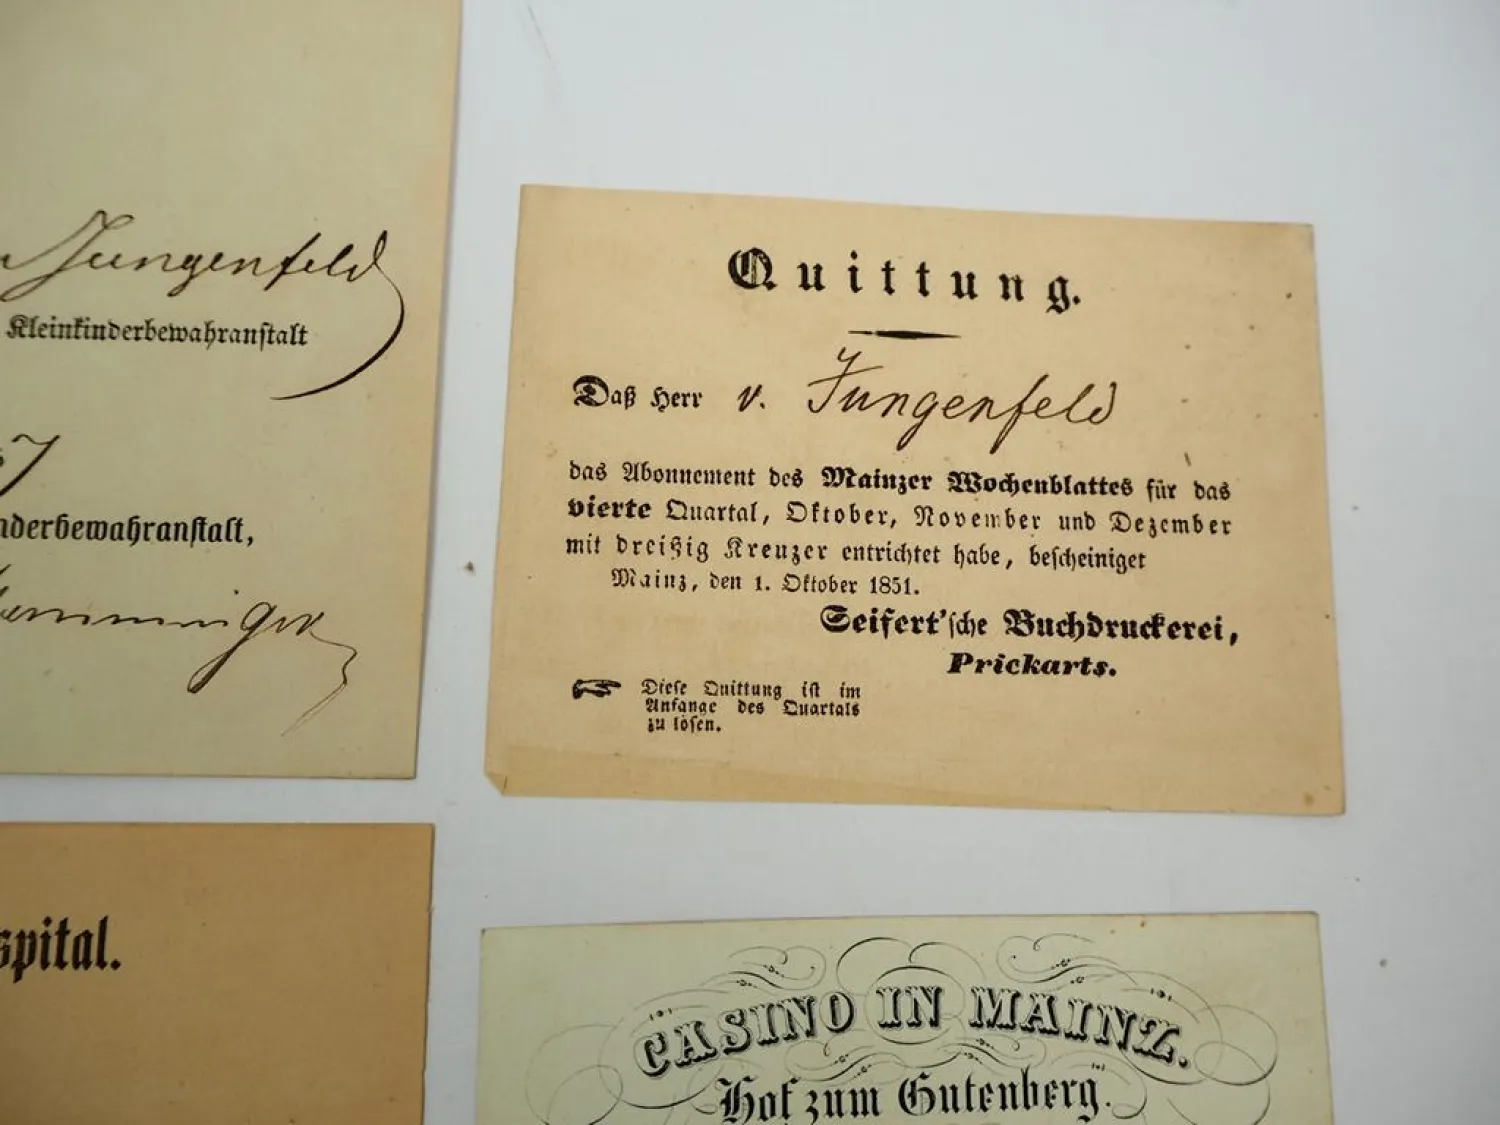 Jungenfeld
Kleinkinderbewahranstalt
7
nderbewahranstalt,
Quittung.
Daß Herr v. Jungenfeld
das Abonnement des Mainzer Wochenblattes für das
vierte Quartal, Oktober, November und Dezember
mit dreißig Kreuzer entrichtet habe, bescheiniget
Mainz, den 1. Oktober 1851.
Seifert'sche Buchdruckerei,
Prickarts.
☞ Diese Quittung ist im
Anfange des Quartals
zu lösen.
spital.
CASINO IN MAINZ.
Hof zum Gutenberg.